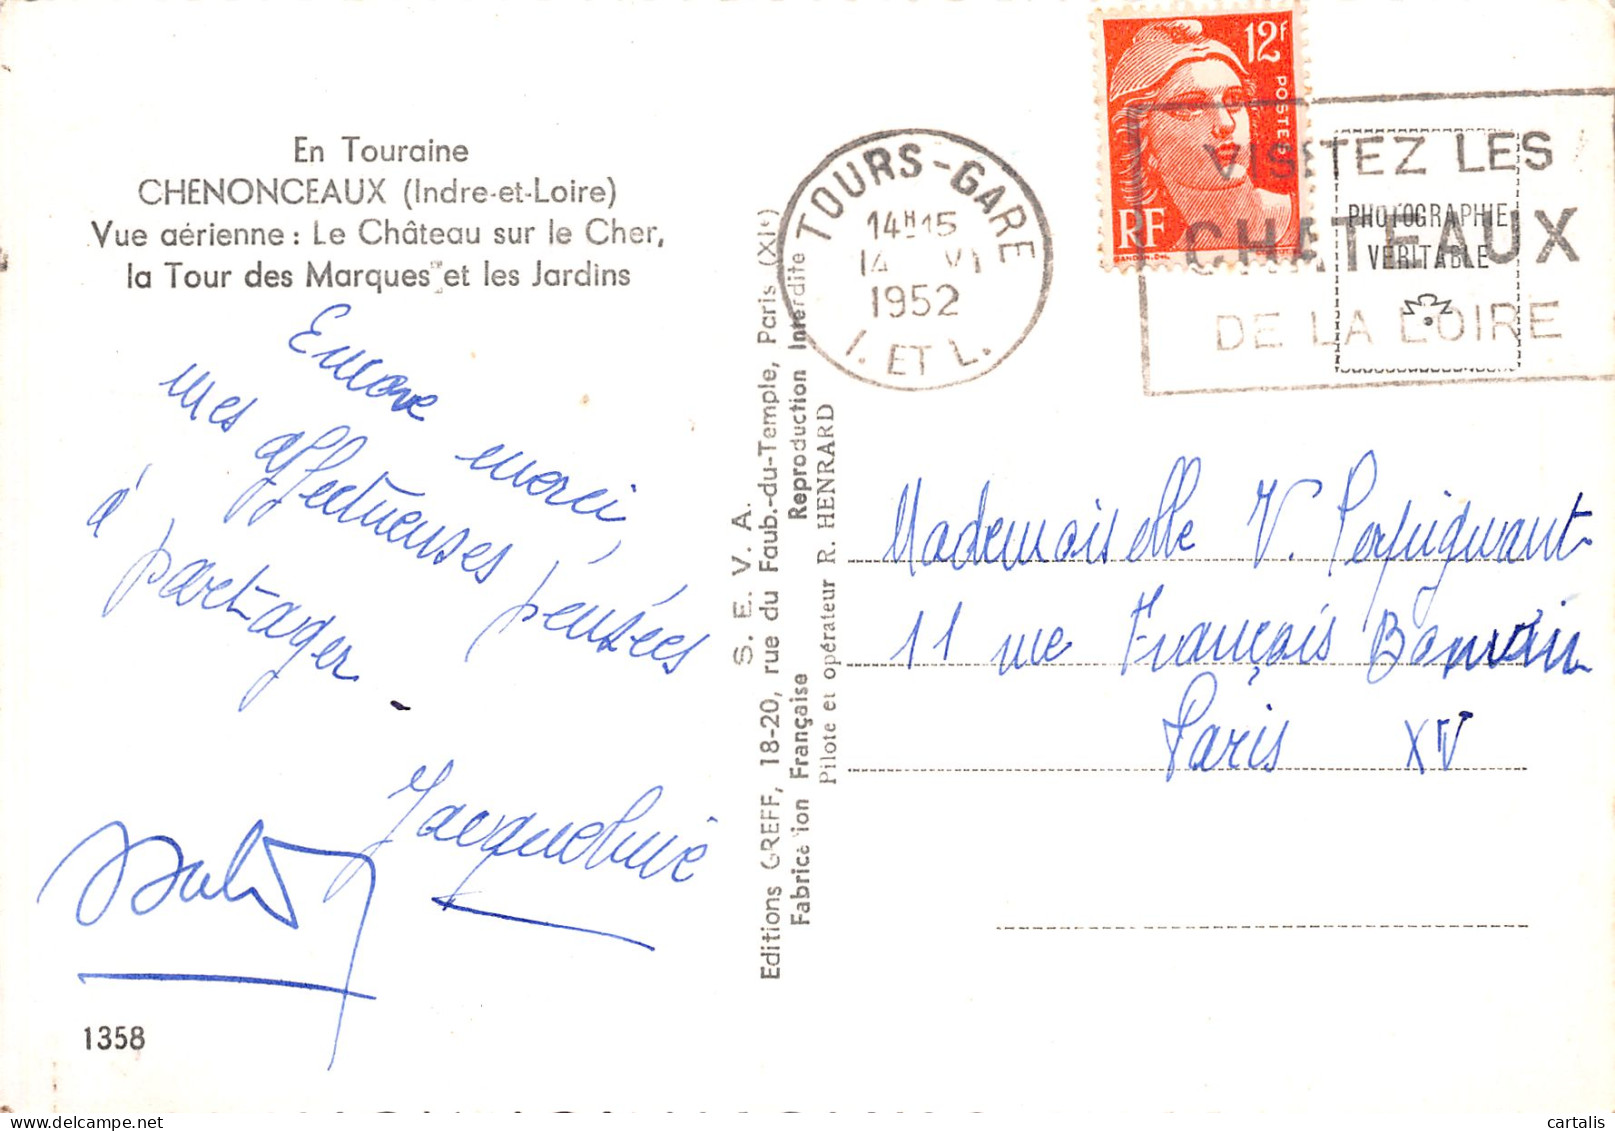 En Touraine
CHENONCEAUX (Indre-et-Loire)
Vue aérienne : Le Château sur le Cher,
la Tour des Marques et les Jardins
Encore merci,
mes affectueuses pensées
à partager
Jacqueline
1358
S. E. V. A.
Editions GREFF, 18-20, rue du Faub.-du-Temple, Paris (XIe)
Fabrication Française Reproduction Interdite
Pilote et opérateur R. HENRARD
TOURS-GARE
14H15
14 VI
1952
I. ET L.
12F
POSTES
RF
GANDON, DEL.
VISITEZ LES
CHATEAUX
DE LA LOIRE
PHOTOGRAPHIE
VERITABLE
Mademoiselle V. Perpignant
11 rue François Bonvin
Paris XV
cartalis